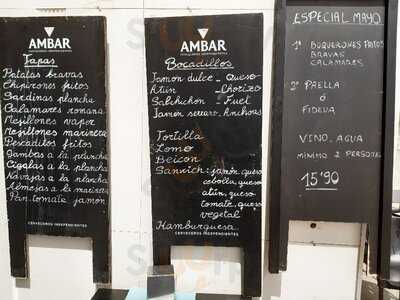 AMBAR
Tapas
Patatas bravas
Chipirones fritos
Sardinas plancha
Calamares romana
Mejillones vapor
Mejillones marinera
Pescaditos fritos
Gambas a la planch
Cigalas a la planch
Navajas a la planch
Almejas a la mariner
Pan tomate jamón
CERVECEROS INDEPENDIENTES
AMBAR
Bocadillos
Jamón dulce - Queso
Atún - Chorizo
Salchichón - Fuet
Jamón serrano - Anchoas
Tortilla
Lomo
Beicon
Sanwich: jamón, queso
cebolla, queso
atún, queso
tomate, queso
vegetal
Hamburguesa
CERVECEROS INDEPENDIENTES
ESPECIAL MAYO
1º BOQUERONES FRITOS
BRAVAS
CALAMARES
2º PAELLA
Ó
FIDEUA
VINO, AGUA
MINIMO 2 PERSONA
15'90